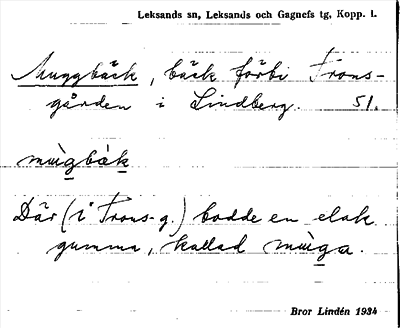 Leksands sn, Leksands och Gagnefs tg, Kopp. l.
Muggbäck, bäck förbi Frons-
gården i Lindberg. 51.
mùgbȧk
Där (i Frons-g.) bodde en elak
gumma, kallad mùga.
Bror Lindén 1934